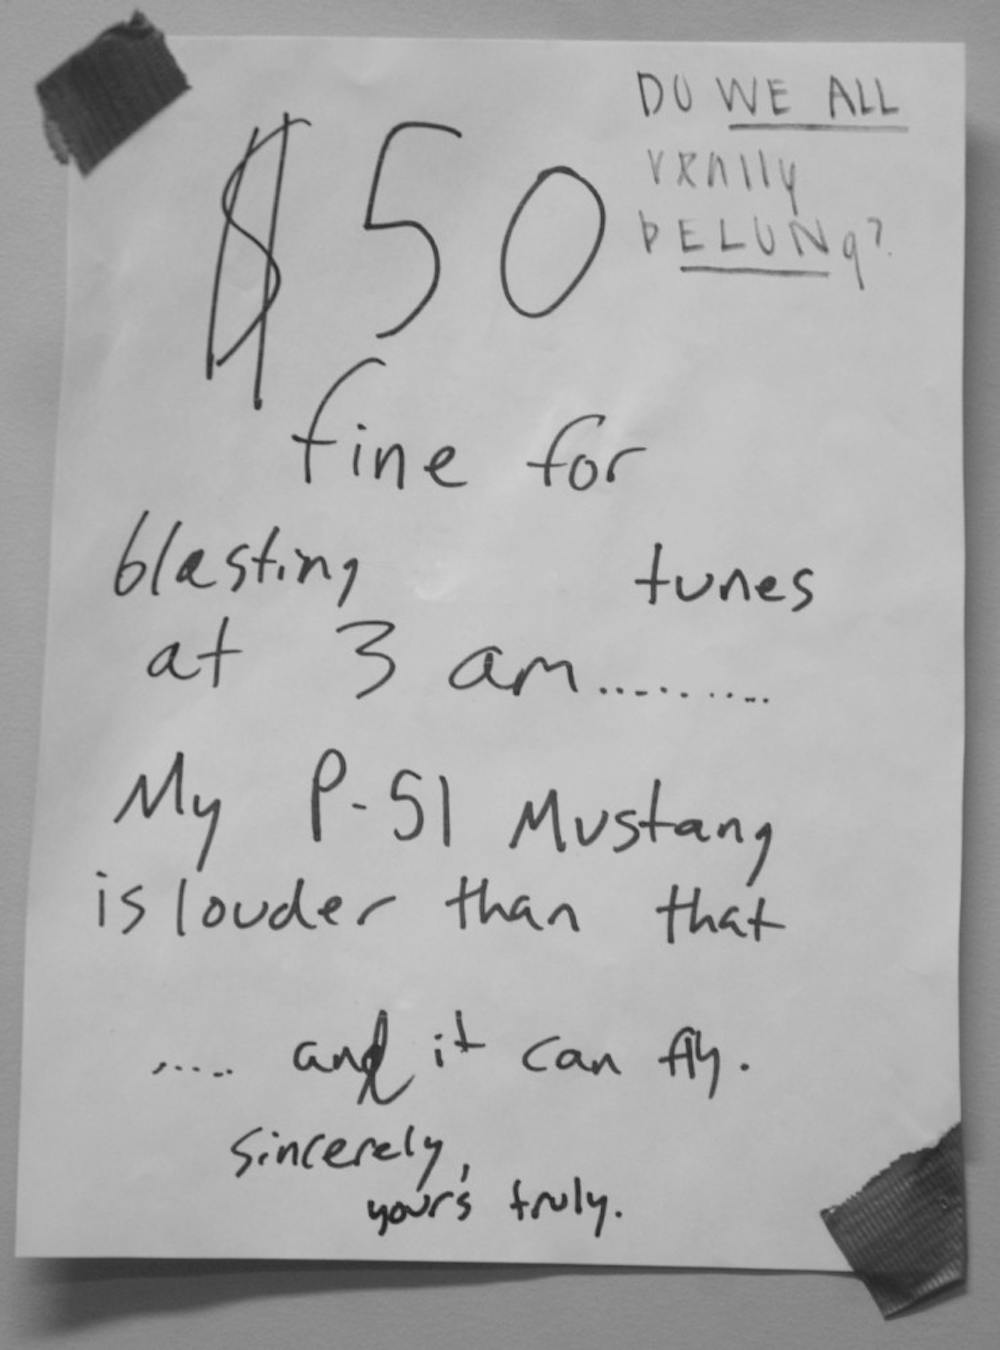 $50
DO WE ALL
really
bELONg?
fine for
blasting tunes
at 3 am..........
My P-51 Mustang
is louder than that
..... and it can fly.
sincerely,
your's truly.